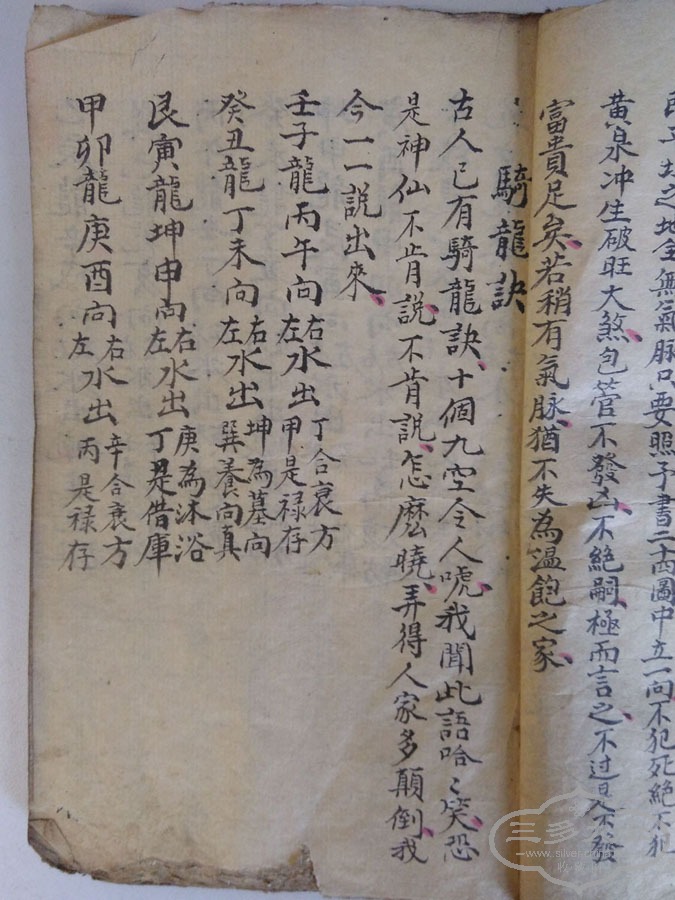 之地全無氣脉只要照予書二十四圖中立一向不犯死絕不犯
黃泉冲生破旺大煞包管不發凶不絕嗣極而言之不过是不發
富貴足矣若稍有氣脉猶不失為溫飽之家
騎龍訣
古人已有騎龍訣十個九空令人唬我聞此語哈〻笑恐
是神仙不肯說不肯說怎麽曉弄得人家多顛倒我
今一一說出來
壬子龍丙午向右左水出丁合衰方甲是禄存
癸丑龍丁未向右左水出坤為墓向巽養向真
艮寅龍坤申向右左水出庚為沐浴丁是借庫
甲卯龍庚酉向右左水出辛合衰方丙是禄存
三多
www.silver